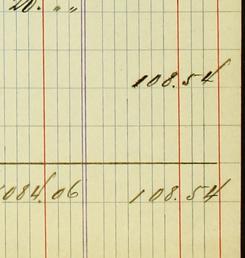 20. " "
108.54
084.06 108.54